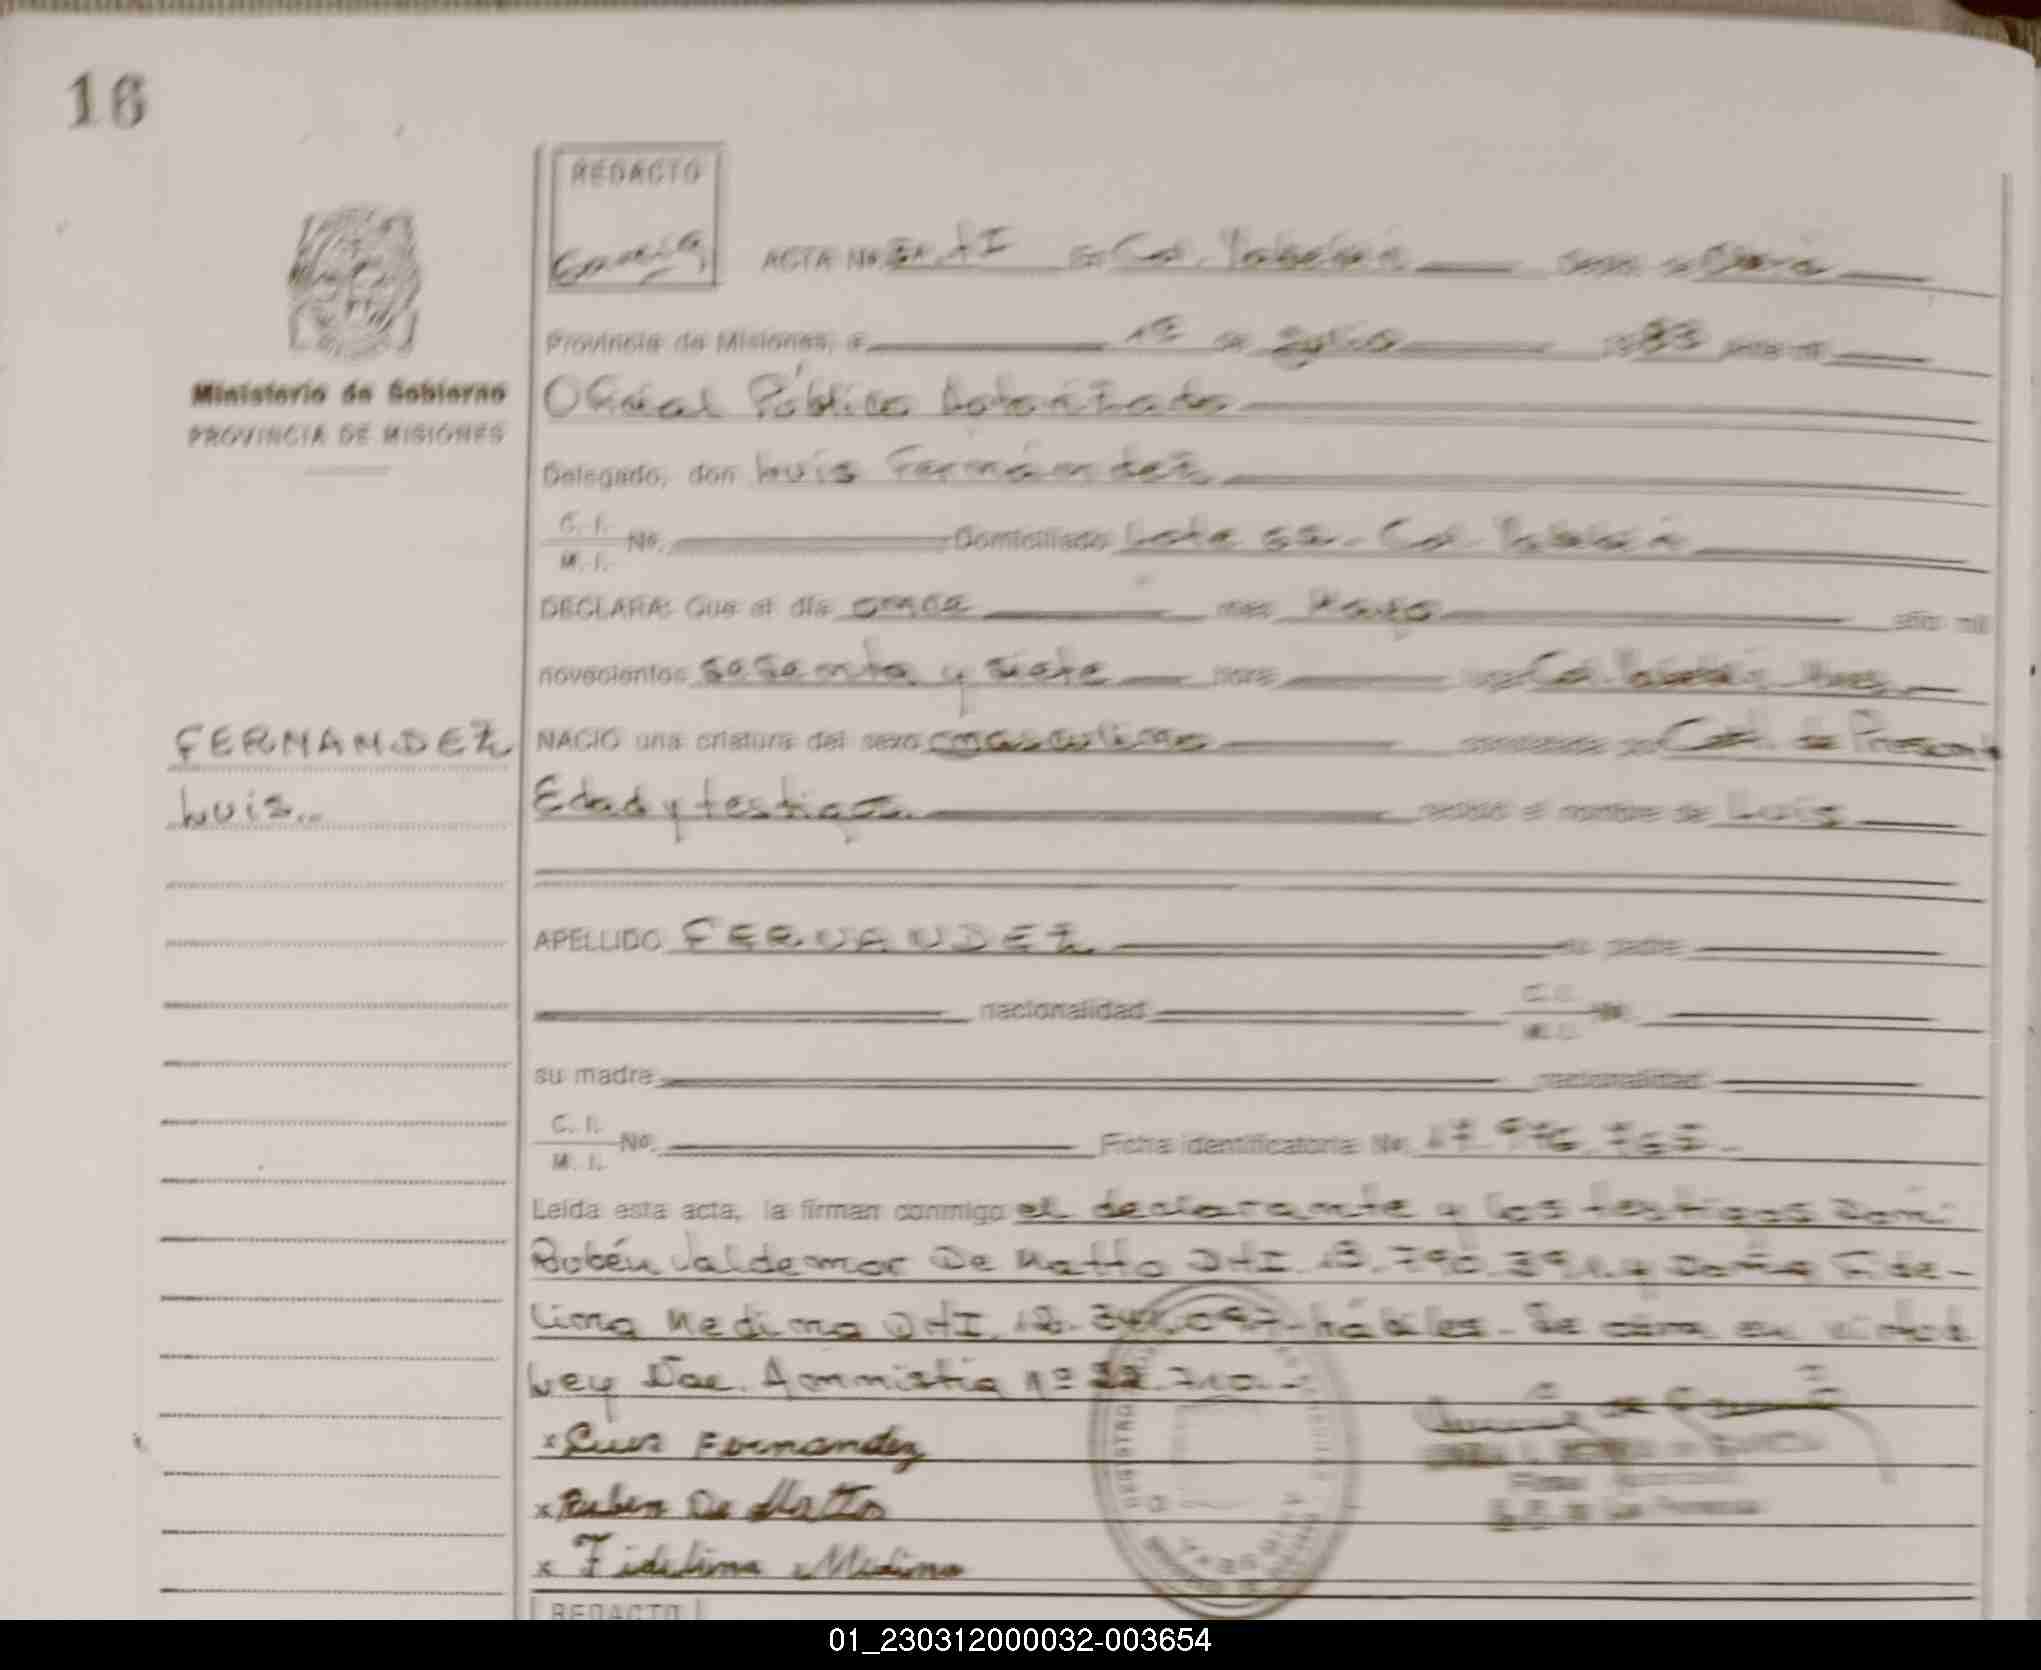 16
REDACTO
ACTA No. En Col. Sección
Provincia de Misiones, a 12 de Julio 1983 ante mí
Ministerio de Gobierno
Oficial Público Autorizado
PROVINCIA DE MISIONES
Delegado, don Luis Fernández
C. I.
M. I. No. Domiciliado Lote Col.
DECLARA: Que el día once mes Mayo año mil
novecientos sesenta y siete hora lugar Col.
FERNANDEZ
NACIO una criatura del sexo masculino constatado por Cert. de Presont
Luis..
Edad y testigos recibió el nombre de Luis
APELLIDO FERNANDEZ su padre
nacionalidad C. I.
M. I. No.
su madre nacionalidad
C. I.
M. I. No. Ficha identificatoria No. 17.976.765
Leída esta acta, la firman conmigo el declarante y los testigos Don:
Rubén Valdemar De Matto DNI. 13.790.391 y Doña Fide-
lina Medina DNI. hábiles. Se en virtud
Ley Nac. Amnistia nº 22.710.-
x Luis Fernandez
x Ruben De Matto
x Fidelina Medina
REDACTO
01_230312000032-003654